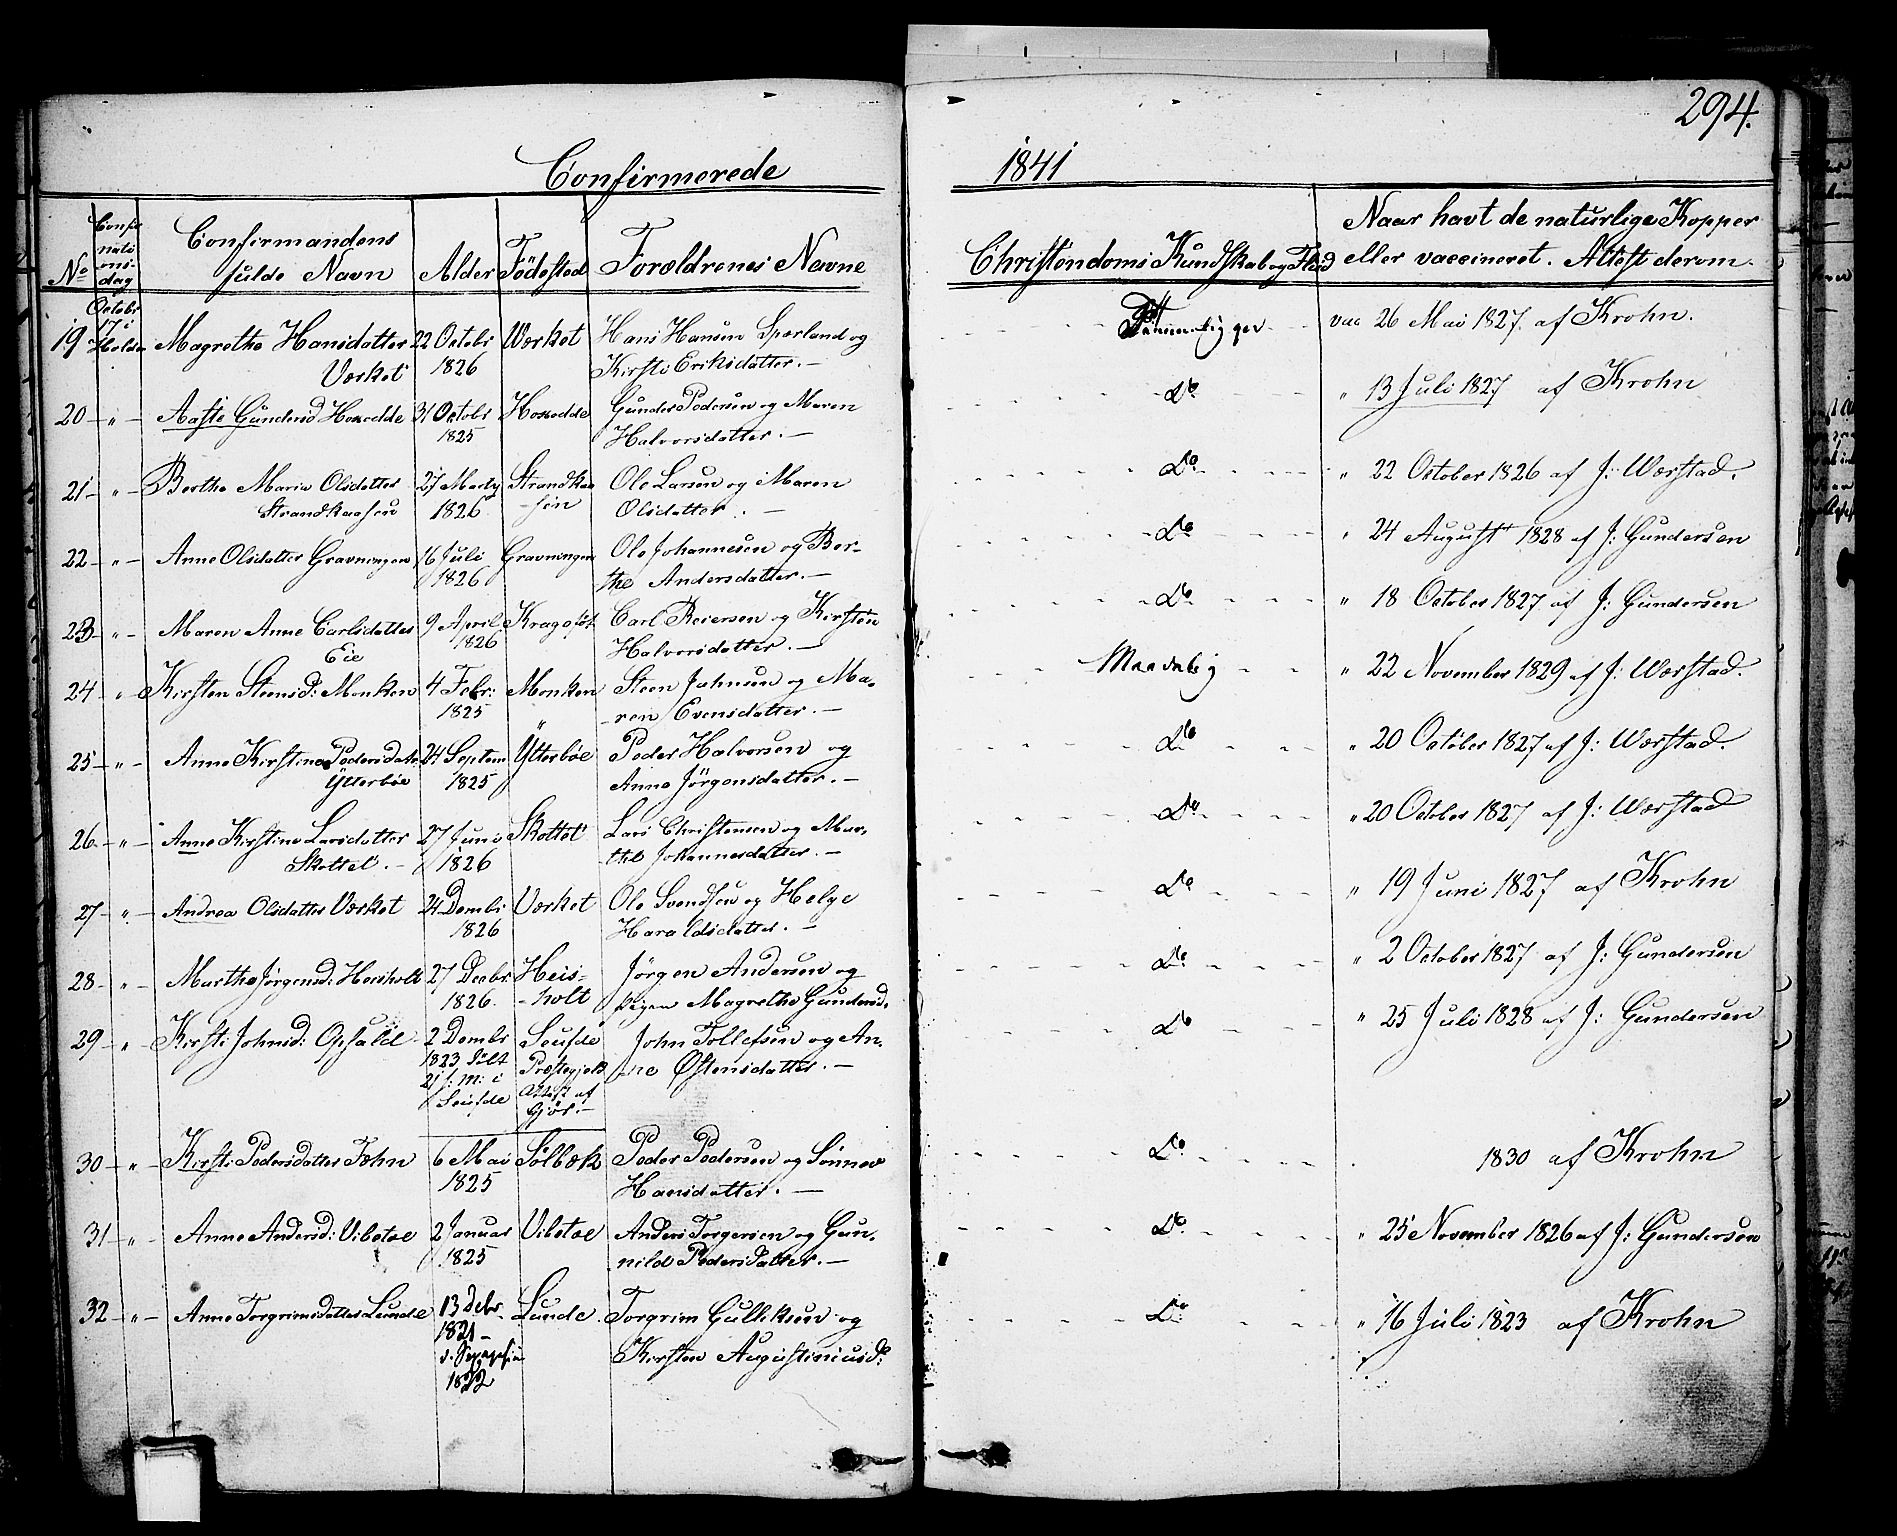 294.
Confirmerede
1841
No
Confir
mati
ons-
dag
Confirmandens
fulde Navn
Alder
Fødested
Forældrenes Navne
Christendoms Kundskab og Flid
Naar havt de naturlige Kopper
eller vaccineret. Attest derom.
Octobr
17 i
Holden
19 Magrethe Hansdatter 22 Octobr Værket Hans Hansen Sparland og
Værket 1826 Kirsti Eriksdatter. —
vac 26 Mai 1827. af Krohn.
20 — „ — Aaste Gundersd Hoxedde 31 Octobr Hoxedde Gunder Pedersen og Maren
1825 Halvorsdatter. —
Do „ 13 Juli 1827 af Krohn
21 — „ — Berthe Maria Olsdatter 27 Martz Strandkaa Ole Larsen og Maren
Strandkaasen 1826 -sen Olsdatter. —
Do „ 22 October 1826 af J: Wærstad.
22 — „ — Anne Olsdatter Gravningen 16 Juli Gravningen Ole Johannesen og Ber-
1826 the Andersdatter. —
Do „ 24 August 1828 af J: Gundersen
23 „ — Maren Anne Carlsdatter 9 April Kragerø Carl Reiersen og Kirsten
Eie 1826 Halvorsdatter. —
Do „ 18 October 1827 af J: Gundersen
24 — „ Kirsten Steensd: Monken 4 Febr: Monken Steen Johnsen og Ma-
1825 „ ren Evensdatter. —
Maadelig „ 22 November 1829 af J: Wærstad.
25 — „ — Anne Kirstine Pedersdatr 24 Septem Ytterbøe Peder Halvorsen og
Ytterbøe 1825 Anne Jörgensdatter. —
Do „ 20 October 1827 af J: Wærstad.
26 — „ — Anne Kirstine Larsdatter 27 Juni Skottet Lars Christensen og Mar-
Skottet. — 1826 the Johannesdatter. —
Do „ 20 October 1827 af J: Wærstad
27 — „ — Andrea Olsdatter Værket 24 Dembr Værket Ole Svendsen og Helge
1826 Haraldsdatter. —
Do „ 19 Juni 1827 af Krohn
28 — „ — Marthe Jørgensd: Heisholt 27 Decbr Heis- Jörgen Andersen og
1826. -holt pigen Magrethe Gundersd.
Do „ 2 October 1827 af J: Gundersen
29 — „ — Kirsti Johnsd: Opsald 2 Dembr Seufde John Tollefsen og An-
1823 Præstegjeld ne Østensdatter. —
21 f: M: i Attest af
Seufde
Do „ 25 Juli 1828 af J: Gundersen
30 — „ — Kirsti Pedersdatter Fæhn 6 Mai Sølbæk Peder Pedersen og Sønnev
1825 Hansdatter. —
Do 1830 af Krohn
31 — „ — Anne Andersd: Vibetoe 2 Januar Vibetoe Anders Torgersen og Gun-
1825 nild Pedersdatter. —
Do „ 25 November 1826 af J: Gundersen
32 — „ — Anne Torgrimsdatter Lunde 13 Debr Lunde Torgrim Gulleksen og
1821 — Kirsten Augustiniusd:
1822
Do „ 16 Juli 1823 af Krohn